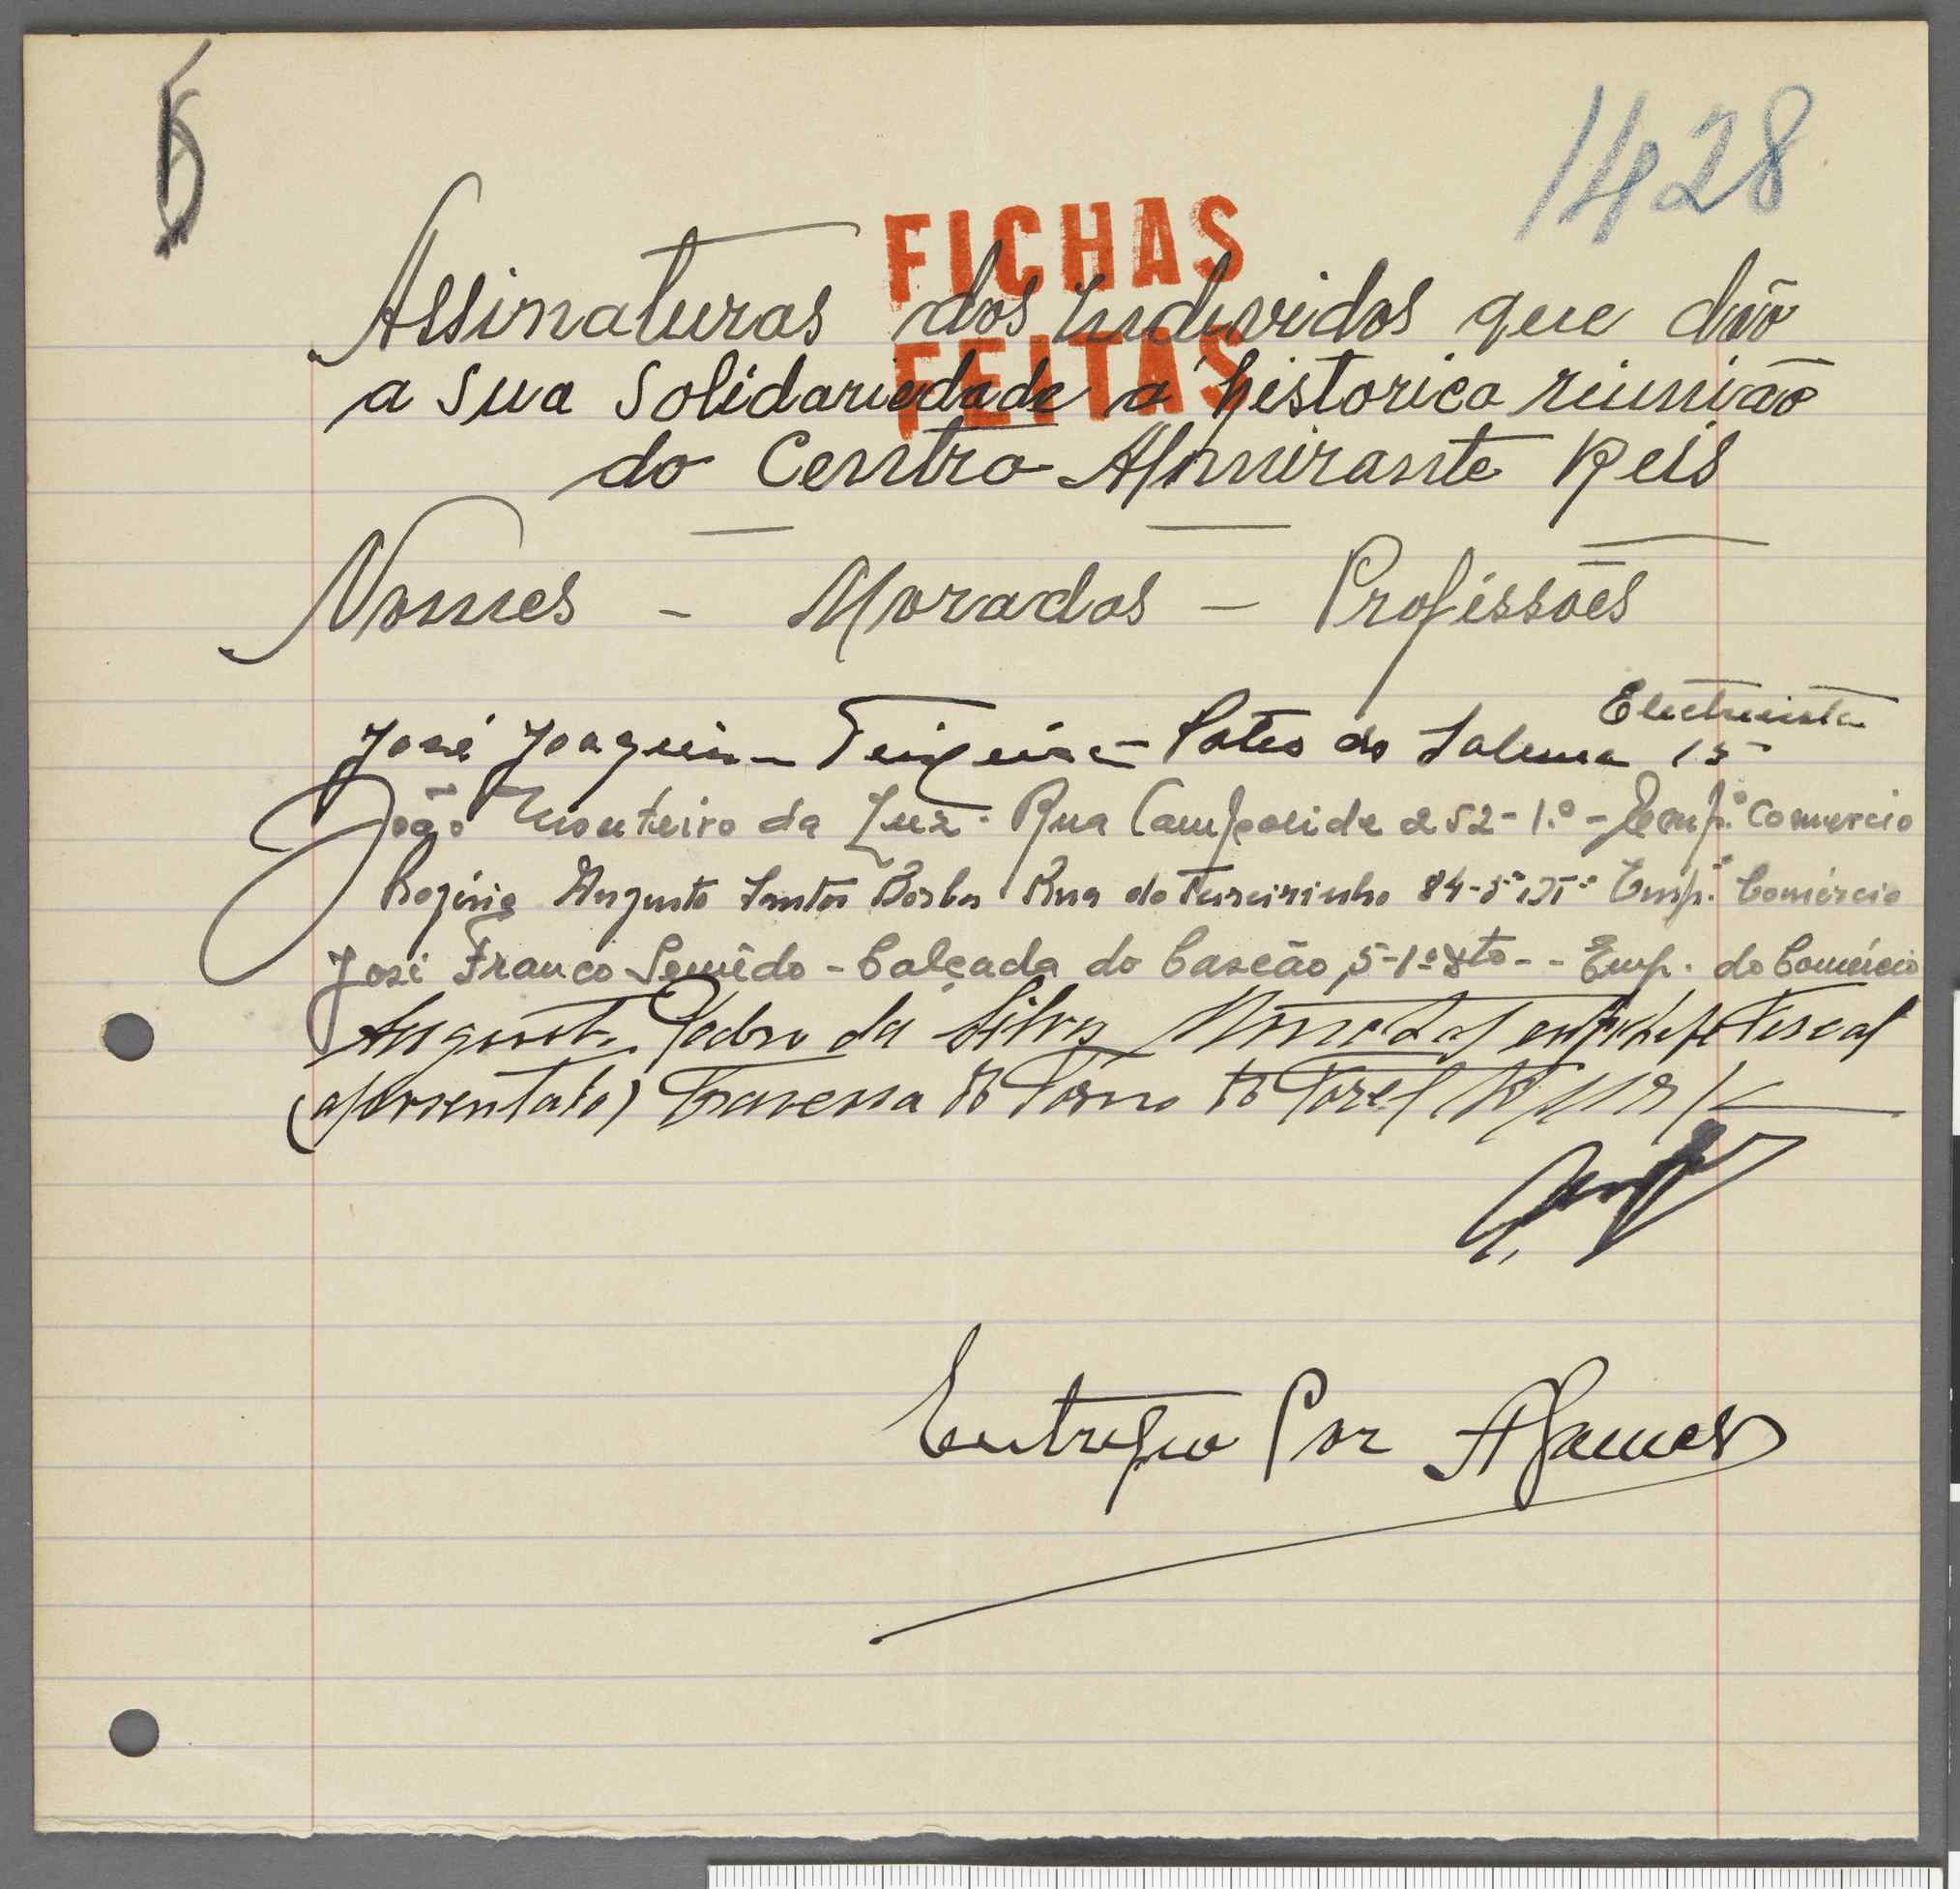 5
1428
FICHAS
FEITAS
Assinaturas dos Individos que dão
a sua solidariedade á historica reunião
do Centro Almirante Reis
Nomes - Moradas - Profissões
Electricista
José Joaquim Teixeira - Pateo do Salema 15
João Monteiro da Luz - Rua Campolide 252-1.º - Emp.º Comercio
Rogério Augusto Santos Borba Rua do Terreirinho 84-3º Emp.º Comércio
José Franco Semêdo - Calçada do Cascão, 5-1º - Emp. do Comércio
Augusto Pedro da Silva Fiscal
(aposentado) Travessa do Torel
Entregue Por A Gomes